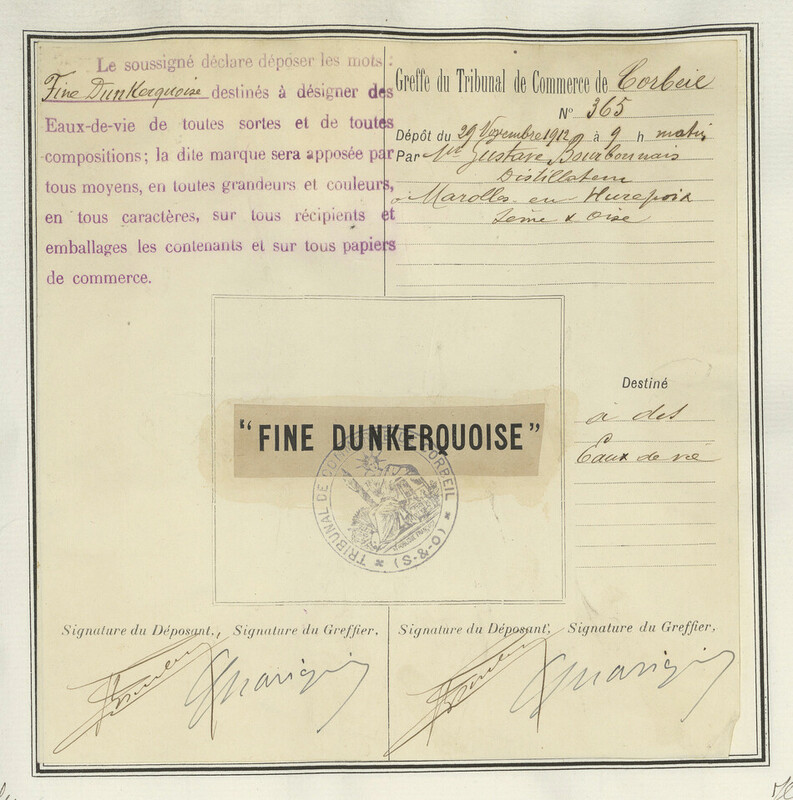 Le soussigné déclare déposer les mots :
Fine Dunkerquoise destinés à désigner des
Eaux-de-vie de toutes sortes et de toutes
compositions; la dite marque sera apposée par
tous moyens, en toutes grandeurs et couleurs,
en tous caractères, sur tous récipients et
emballages les contenants et sur tous papiers
de commerce.
Greffe du Tribunal de Commerce de Corbeil
N° 365
Dépôt du 29 Novembre 1912 à 9 h matin
Par Mr Gustave Bourbonnais
Distillateur
à Marolles en Hurepoix
Seine & Oise
"FINE DUNKERQUOISE"
TRIBUNAL DE COMMERCE DE CORBEIL
(S-&-O)
Destiné
à des
Eaux de vie
Signature du Déposant, Signature du Greffier.
Signature du Déposant, Signature du Greffier.